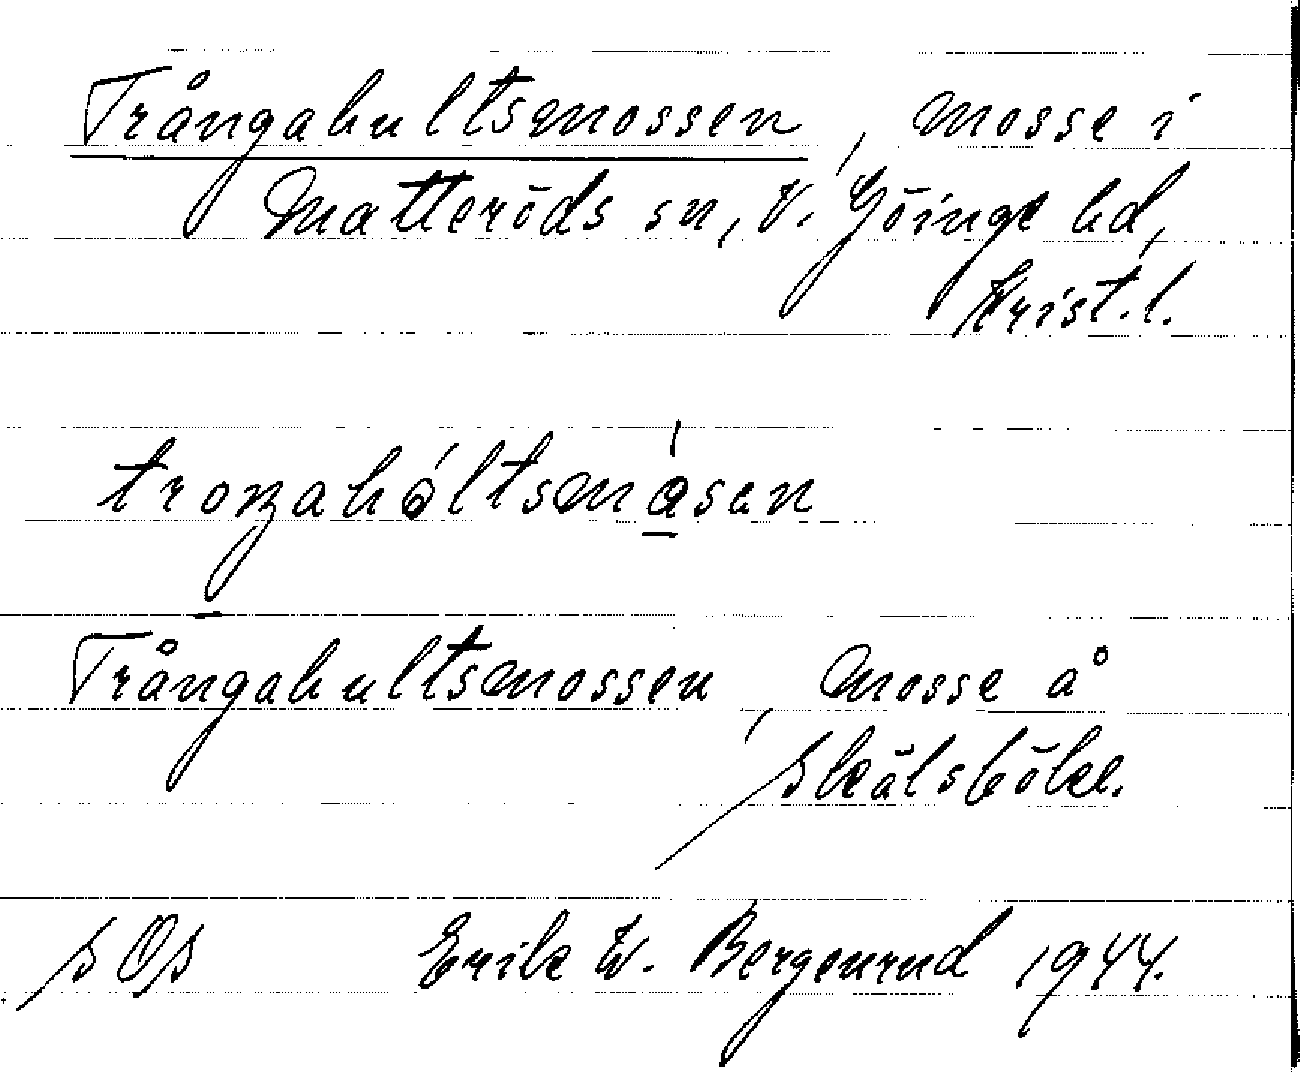 Trångahultsmossen, mosse i
Matteröds sn, V. Göinge hd,
Krist. l.
Trångahultsmossen, mosse å
Skälsböke.
SOS Erik W. Bergenrud 1944.